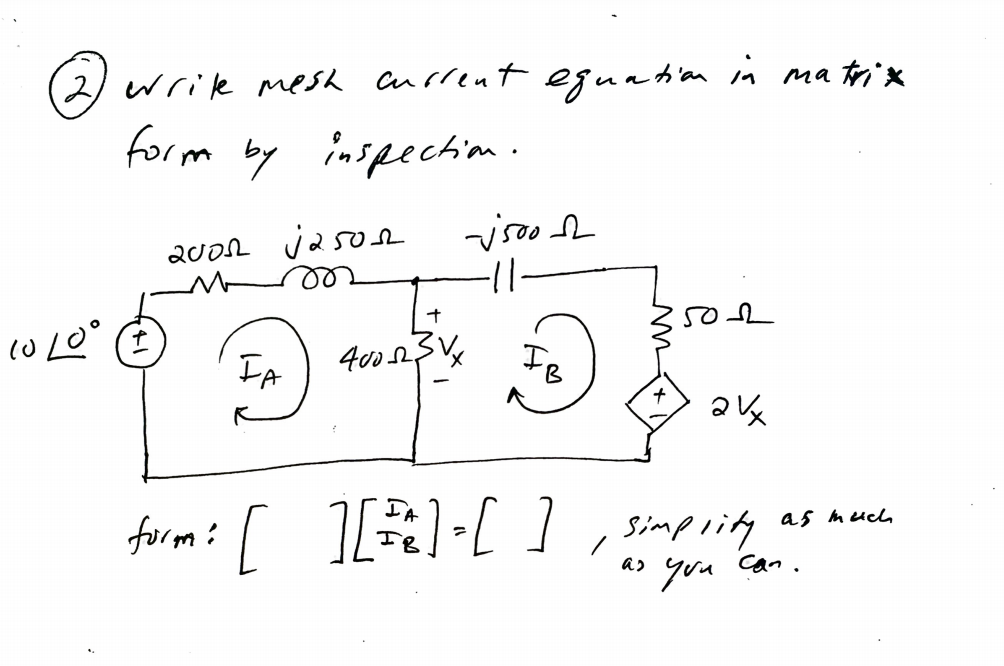 2 write mesh current equation in matrix
form by inspection.
200Ω j250Ω -j500Ω
10∠0° + - I_A 400Ω + V_x - I_B 50Ω
+ - 2V_x
form: [ ] [I_A I_B] = [ ], simplify as much
as you can.